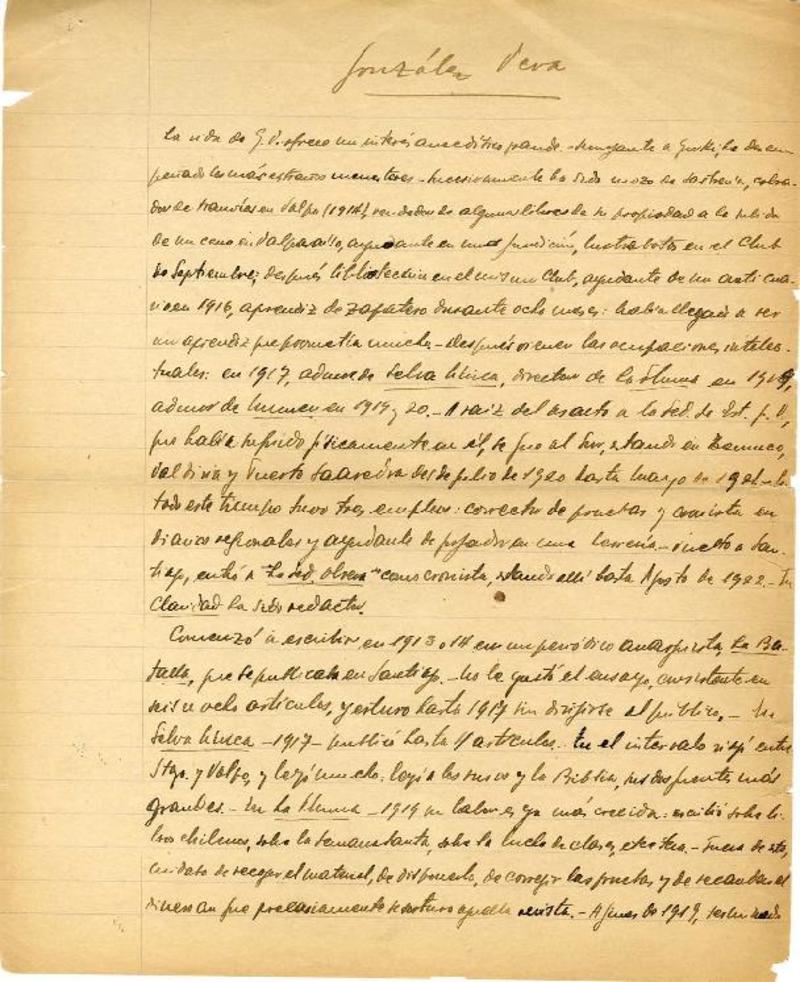 González Vera
La vida de G. V. ofrece un interés anecdótico grande. - Semejante a Gorki, ha desem
peñado los más extraños menesteres. - Sucesivamente ha sido mozo de sastrería, cobra-
dor de tranvías en Valpo (1914), vendedor de algunos libros de su propiedad a la subida
de un cerro en Valparaíso, ayudante en una fundición, lustrabotas en el Club
de Septiembre; después bibliotecario en el mismo Club, ayudante de un anticua-
rio en 1916, aprendiz de zapatero durante ocho meses: había llegado a ser
un aprendiz que prometía mucho. - Después vienen las ocupaciones intelec-
tuales: en 1917, admor de Selva Lírica, director de La Pluma en 1919,
admor de Numen en 1919 y 20. - A raíz del asalto a la Fed. de Est. G. V,
que había sufrido físicamente en él, se fue al Sur, estando en Temuco,
Valdivia y Puerto Saavedra desde julio de 1920 hasta marzo de 1921. - En
todo este tiempo tuvo tres empleos: corrector de pruebas y cronista en
diarios regionales y ayudante de en una - Vuelto a San-
tiago, entró a "La Fed. Obrera" como cronista, estando allí hasta Agosto de 1922. - En
Claridad ha sido redactor.
Comenzó a escribir en 1913 o 14 en un periódico anarquista, La Ba-
talla, que se publicaba en Santiago. - No le gustó el ensayo, consistente en
seis u ocho artículos, y estuvo hasta 1917 sin dirigirse al público. - En
Selva Lírica - 1917 - publicó hasta artículos. En el intervalo viajó entre
Stgo. y Valpo, y leyó mucho: leyó a los rusos y la Biblia, sus dos fuentes más
grandes. - En La Pluma - 1919 su labor es ya más crecida: escribió sobre li-
bros chilenos, sobre la Semana Santa, sobre la lucha de clases, etcétera. - Fuera de esto,
cuidaba de recoger el material, de disponerlo, de corregir las pruebas y de recaudar el
dinero con que precariamente se sostuvo aquella revista. - A fines de 1919,